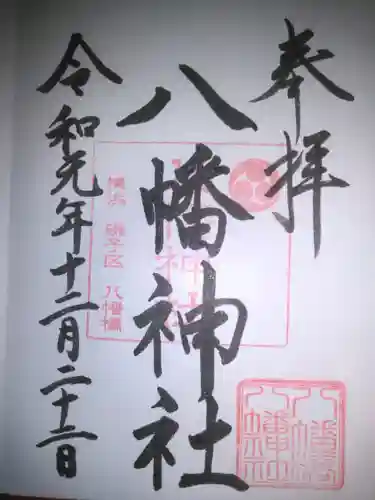 奉拝
八幡神社
横浜 磯子区 八幡橋
令和元年十二月二十二日
八幡神社